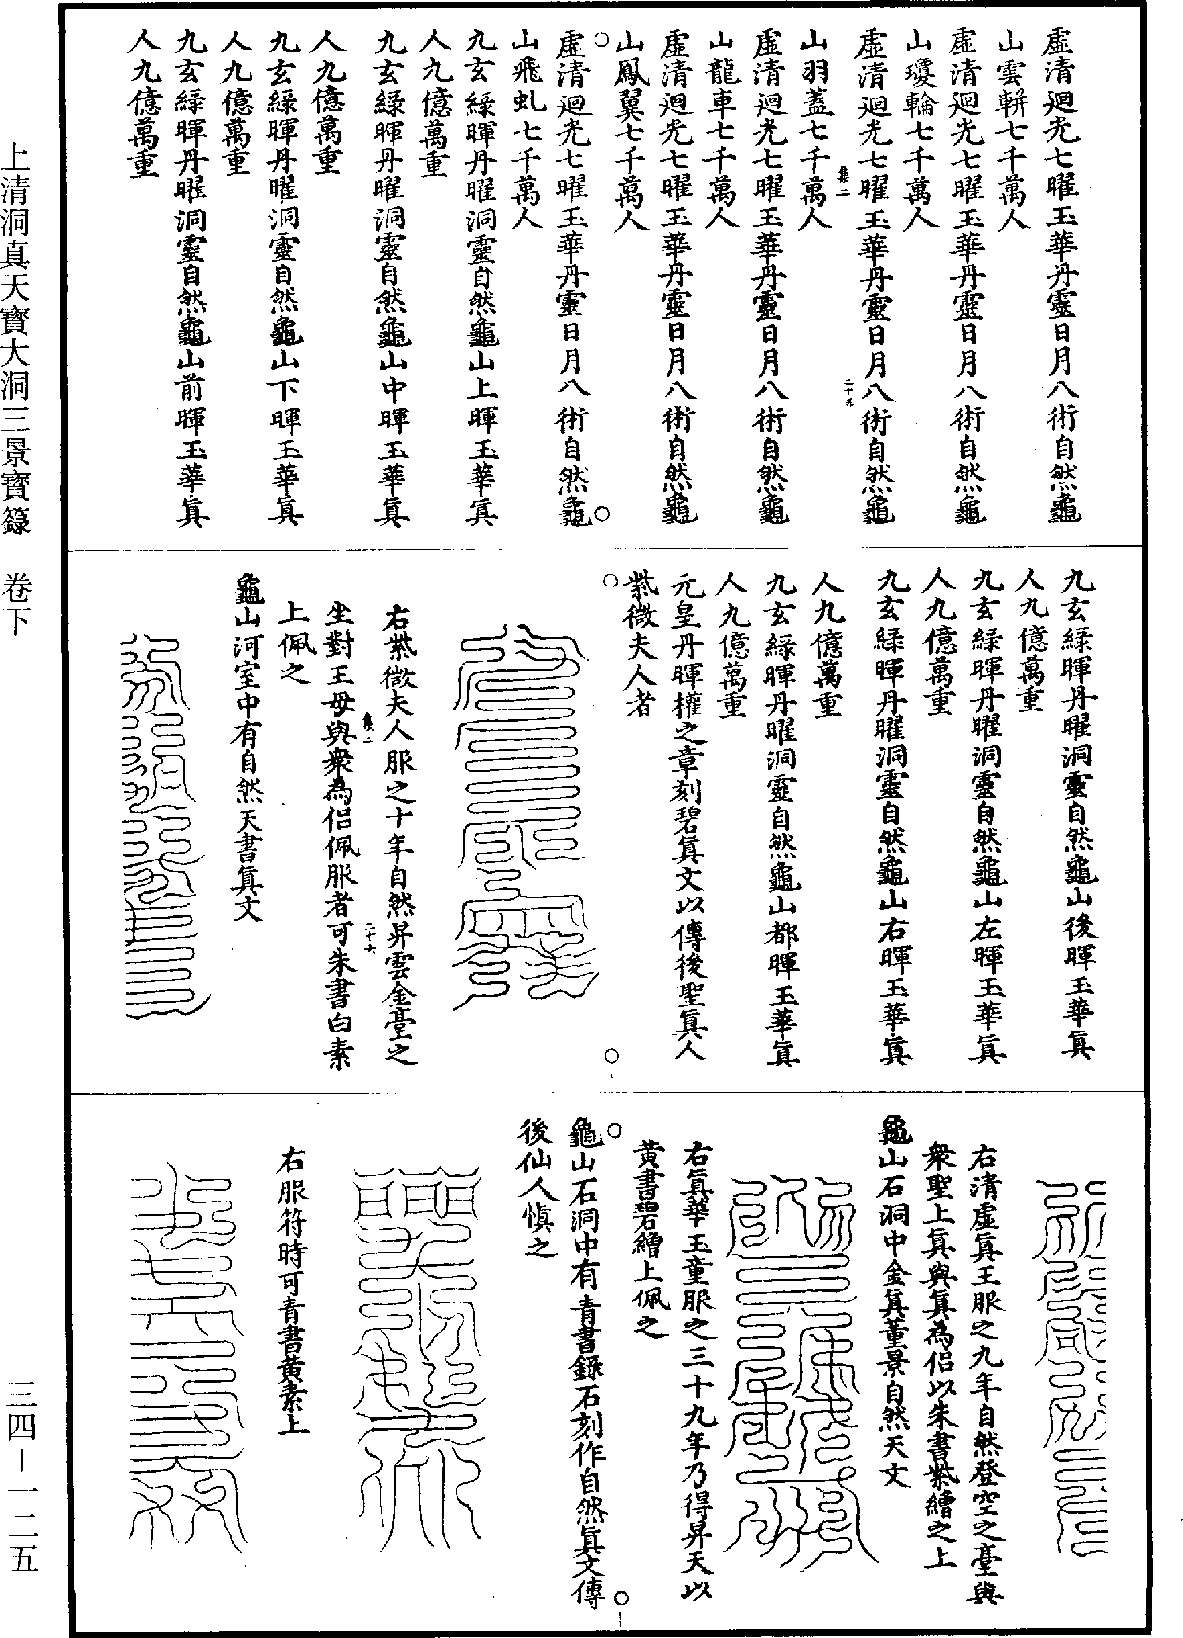 虛清迴光七曜玉華丹靈日月八術自然龜
山雲輧七千萬人
虛清迴光七曜玉華丹靈日月八術自然龜
山瓊輪七千萬人
虛清迴光七曜玉華丹靈日月八術自然龜
山羽蓋七千萬人
虛清迴光七曜玉華丹靈日月八術自然龜
山龍車七千萬人
虛清迴光七曜玉華丹靈日月八術自然龜
山鳳翼七千萬人
虛清迴光七曜玉華丹靈日月八術自然龜
山飛虬七千萬人
九玄綠暉丹曜洞靈自然龜山上暉玉華真
人九億萬重
九玄綠暉丹曜洞靈自然龜山中暉玉華真
人九億萬重
九玄綠暉丹曜洞靈自然龜山下暉玉華真
人九億萬重
九玄綠暉丹曜洞靈自然龜山前暉玉華真
人九億萬重
九玄綠暉丹曜洞靈自然龜山後暉玉華真
人九億萬重
九玄綠暉丹曜洞靈自然龜山左暉玉華真
人九億萬重
九玄綠暉丹曜洞靈自然龜山右暉玉華真
人九億萬重
九玄綠暉丹曜洞靈自然龜山都暉玉華真
人九億萬重
元皇丹暉權之章刻碧真文以傳後聖真人
紫微夫人者
右紫微夫人服之十年自然昇雲金臺之
坐對王母與衆為侶佩服者可朱書白素
上佩之
龜山河室中有自然天書真文
右清虛真王服之九年自然登空之臺與
衆聖上真與真為侶以朱書紫繒之上
龜山石洞中金真董景自然天文
右真華玉童服之三十九年乃得昇天以
黃書碧繒上佩之
龜山石洞中有青書錄石刻作自然真文傳
後仙人慎之
右服符時可青書黃素上
上清洞真天寶大洞三景寶籙 卷下
三四－一二五